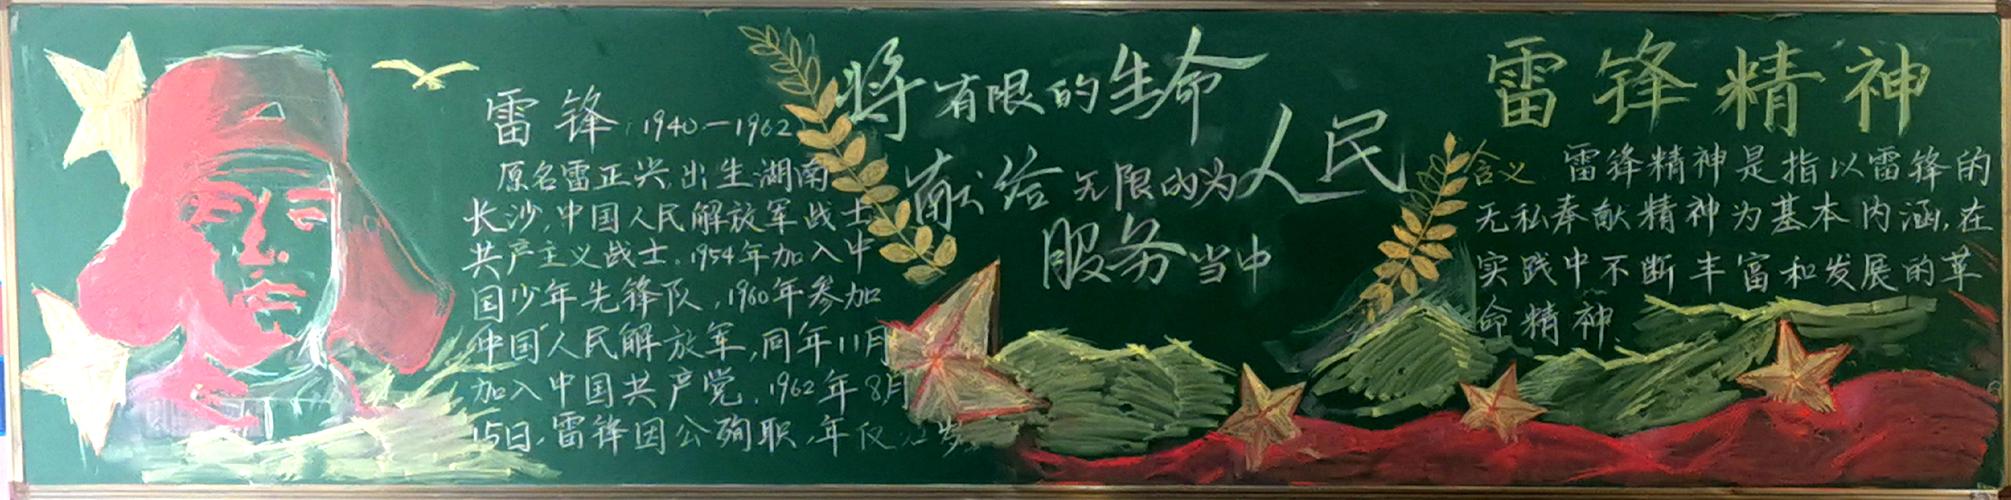 雷锋 1940—1962
原名雷正兴,出生湖南
长沙,中国人民解放军战士
共产主义战士,1954年加入中
国少年先锋队,1960年参加
中国人民解放军,同年11月
加入中国共产党,1962年8月
15日,雷锋因公殉职,年仅22岁
将有限的生命
献给无限的为人民
服务当中
雷锋精神
含义 雷锋精神是指以雷锋的
无私奉献精神为基本内涵,在
实践中不断丰富和发展的革
命精神.